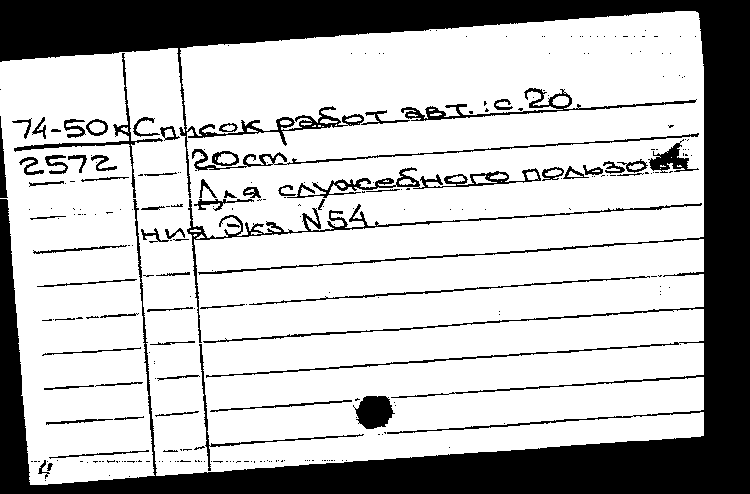 74-50к Список работ авт.: с. 20.
2572 20 см.
Для служебного пользова
ния. Экз. N54.
4